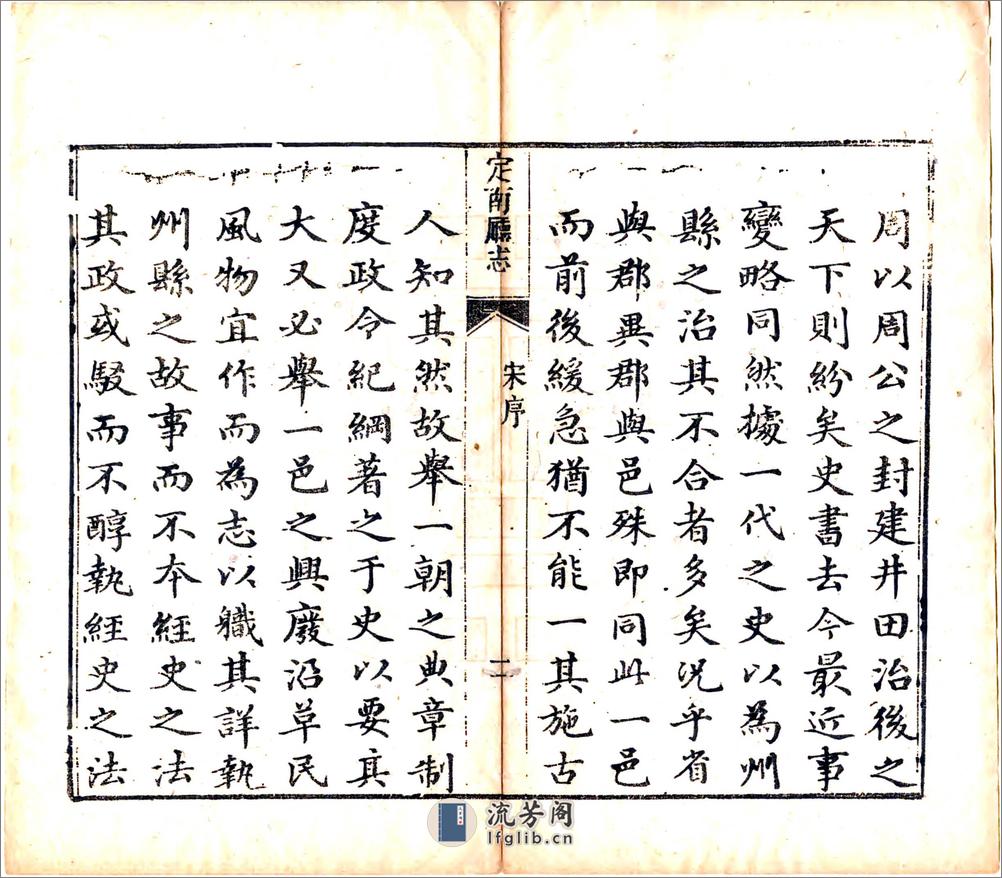 周以周公之封建井田治後之
天下則紛矣史書去今最近事
變略同然據一代之史以為州
縣之治其不合者多矣況乎省
與郡異郡與邑殊即同此一邑
而前後緩急猶不能一其施古
定南廳志
宋序
二
人知其然故舉一朝之典章制
度政令紀綱著之于史以要其
大又必舉一邑之興廢沿革民
風物宜作而為志以職其詳執
州縣之故事而不本經史之法
其政或駁而不醇執經史之法
流芳阁
lfglib.cn